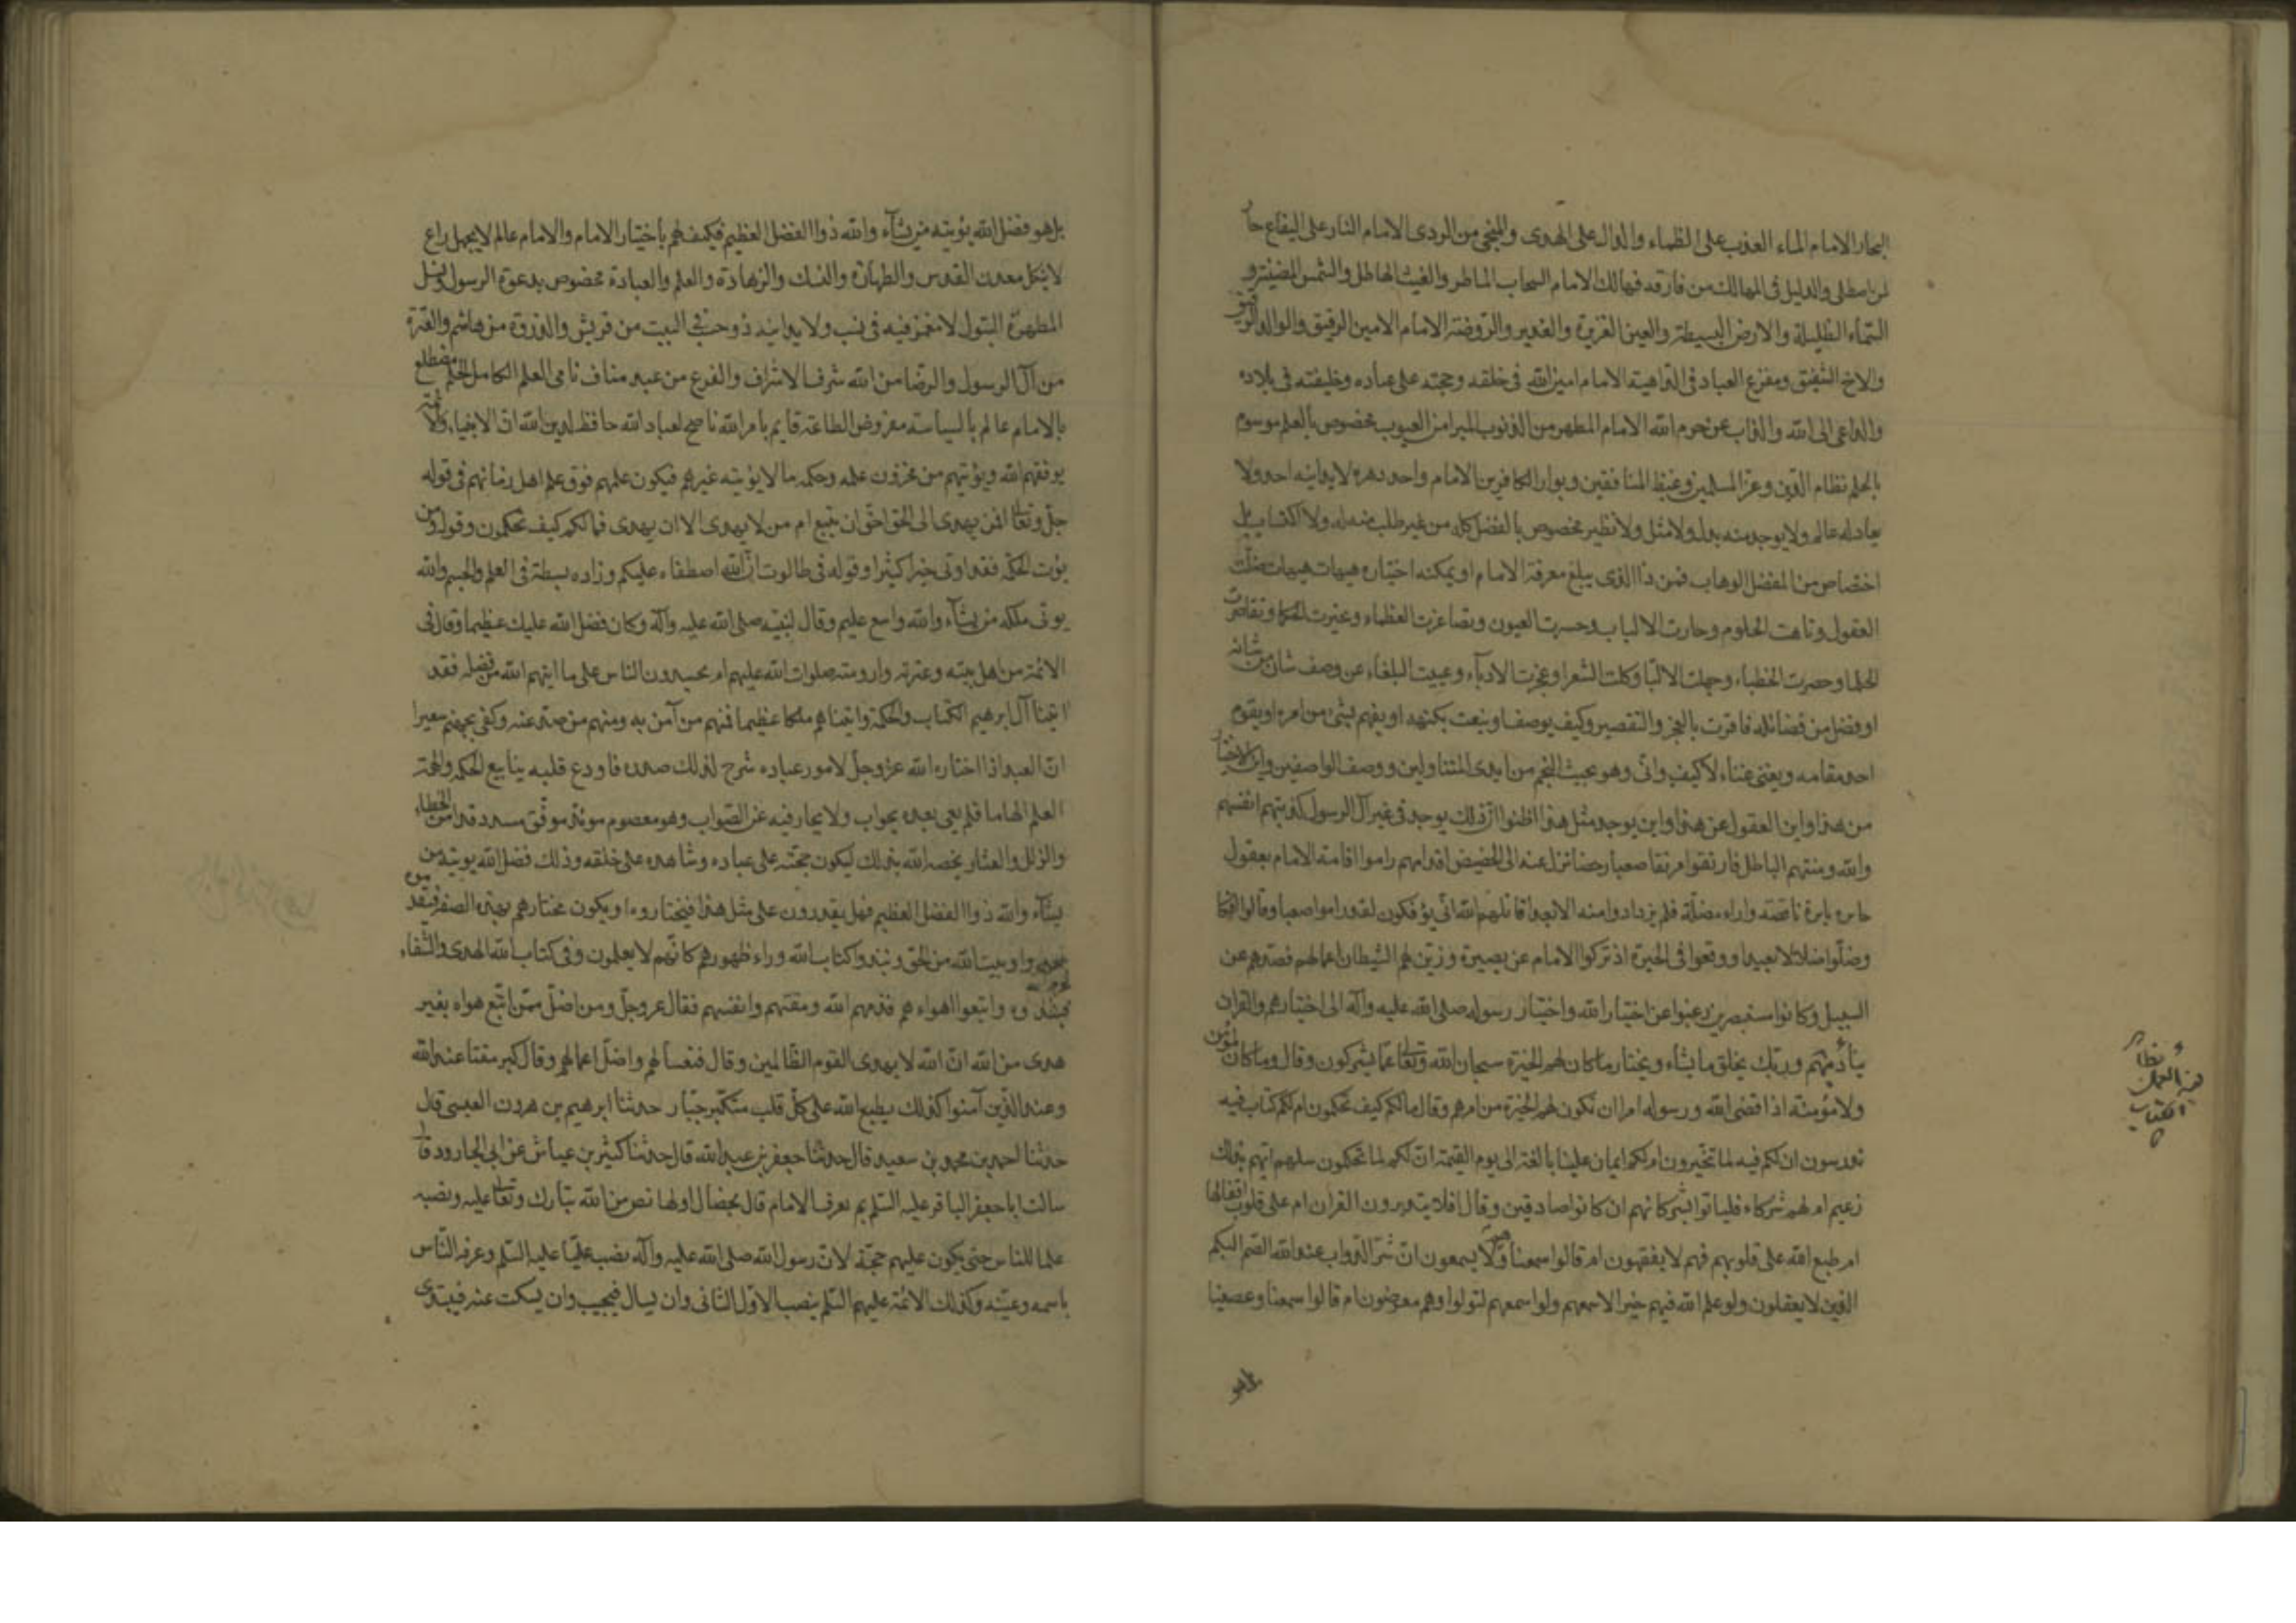 البحار الامام الماء العذب على الظماء والدال على الهدى والمنجى من الردى الامام النار على اليفاع حار
لمن اصطلى والدليل فى المهالك من فارقه فهالك الامام السحاب الماطر والغيث الهاطل والشمس المضيئة و
السماء الظليلة والارض البسيطة والعين الغزيرة والغدير والروضة الامام الامين الرفيق والوالد الرقيق
والاخ الشفيق ومفزع العباد فى الداهية الامام امين الله فى خلقه وحجته على عباده وخليفته فى بلاده
والداعى الى الله والذاب عن حرم الله الامام المطهر من الذنوب المبرا من العيوب مخصوص بالعلم موسوم
بالحلم نظام الدين وعز المسلمين وغيظ المنافقين وبوار الكافرين الامام واحد دهره لا يدانيه احد ولا
يعادله عالم ولا يوجد منه بدل ولا مثل ولا نظير مخصوص بالفضل كله من غير طلب منه له ولا اكتساب بل
اختصاص من المفضل الوهاب فمن ذا الذى يبلغ معرفة الامام او يمكنه اختياره هيهات هيهات ضلت
العقول وتاهت الحلوم وحارت الالباب وحسرت العيون وتصاغرت العظماء وتحيرت الحكما وتقاصرت
الحلما وحصرت الخطباء وجهلت الالبا وكلت الشعرا وعجزت الادباء وعييت البلغاء عن وصف شان من شانه
او فضل من فضائله فاقرت بالعجز والتقصير وكيف يوصف او ينعت بكنهه او يفهم شئ من امره او يقوم
احد مقامه ويغنى غناء لا كيف وانى وهو بحيث النجم من ايدى المتناولين ووصف الواصفين واين الاختيار
من هذا واين العقول عن هذا واين يوجد مثل هذا اظنوا ان ذلك يوجد فى غير آل الرسول كذبتهم انفسهم
والله ومنتهم الباطل فارتقوا مرتقا صعبا دحضا تزل عنه الى الحضيض اقدامهم راموا اقامة الامام بعقول
حايرة بايرة ناقصة واراء مضلة فلم يزدادوا منه الا بعدا قاتلهم الله انى يؤفكون لقد راموا صعبا وقالوا افكا
وضلوا ضلالا بعيدا ووقعوا فى الحيرة اذ تركوا الامام عن بصيرة وزين لهم الشيطان اعمالهم فصدهم عن
السبيل وكانوا مستبصرين رغبوا عن اختيار الله واختيار رسوله صلى الله عليه وآله الى اختيارهم والقران
يناديهم وربك يخلق ما يشاء ويختار ما كان لهم الخيرة سبحان الله وتعالى عما يشركون وقال وما كان لمؤمن
ولا مؤمنة اذا قضى الله ورسوله امرا ان تكون لهم الخيرة من امرهم وقال ما لكم كيف تحكمون ام لكم كتاب فيه
تدرسون ان لكم فيه لما تخيرون ام لكم ايمان علينا بالغة الى يوم القيمة ان لكم لما تحكمون سلهم ايهم بذلك
زعيم ام لهم شركاء فلياتوا بشركائهم ان كانوا صادقين وقال افلا يتدبرون القران ام على قلوب اقفالها
ام طبع الله على قلوبهم فهم لا يفقهون ام قالوا سمعنا وهم لا يسمعون ان شر الدواب عند الله الصم البكم
الذين لا يعقلون ولو علم الله فيهم خيرا لاسمعهم ولو اسمعهم لتولوا وهم معرضون ام قالوا سمعنا وعصينا
بل هو
بل هو فضل الله يؤتيه من يشآء والله ذوا الفضل العظيم فكيف لهم باختيار الامام والامام عالم لا يجهل راع
لا ينكل معدن القدس والطهارة والنسك والزهادة والعلم والعبادة مخصوص بدعوة الرسول ونسل
المطهرة البتول لا مغمز فيه فى نسب ولا يدانيه ذو حسب فى البيت من قريش والذروة من هاشم والعترة
من آل الرسول والرضا من الله شرف الاشراف والفرع من عبد مناف نامى العلم الكامل الحلم مضطلع
بالامام عالم بالسياسة مفروض الطاعة قايم بامر الله ناصح لعباد الله حافظ لدين الله ان الانبياء والائمة
يوفقهم الله ويؤتيهم من مخزون علمه وحكمه ما لا يؤتيه غيرهم فيكون علمهم فوق علم اهل زمانهم فى قوله
جل وتعالى افمن يهدى الى الحق احق ان يتبع ام من لا يهدى الا ان يهدى فما لكم كيف تحكمون وقوله ومن
يؤت الحكمة فقد اوتى خيرا كثيرا وقوله فى طالوت ان الله اصطفاه عليكم وزاده بسطة فى العلم والجسم والله
يوتى ملكه من يشآء والله واسع عليم وقال لنبيه صلى الله عليه وآله وكان فضل الله عليك عظيما وقال فى
الائمة من اهل بيته وعترته وارومته صلوات الله عليهم ام يحسدون الناس على ما اتيهم الله من فضله فقد
اتينا آل ابرهيم الكتاب والحكمة واتيناهم ملكا عظيما فمنهم من آمن به ومنهم من صد عنه وكفى بجهنم سعيرا
ان العبد اذا اختاره الله عز وجل لامور عباده شرح لذلك صدره فاودع قلبه ينابيع الحكمة والهمة
العلم الهاما فلم يعى بعده بجواب ولا يحار فيه عن الصواب وهو معصوم مؤيد موفق مسدد قد امن الخطاء
والزلل والعثار يخصه الله بذلك ليكون حجته على عباده وشاهده على خلقه وذلك فضل الله يؤتيه من
يشآء والله ذوا الفضل العظيم فهل يقدرون على مثل هذا فيختاروه او يكون مختارهم بهذه الصفة فيقدموه
تعدوا وبيت الله من الحق ونبذوا كتاب الله وراء ظهورهم كانهم لا يعلمون وفى كتاب الله الهدى والشفاء
فنبذوه واتبعوا اهواءهم فذمهم الله ومقتهم وانفسهم فقال عز وجل ومن اضل ممن اتبع هواه بغير
هدى من الله ان الله لا يهدى القوم الظالمين وقال فتعسا لهم واضل اعمالهم وقال كبر مقتا عند الله
وعند الذين آمنوا كذلك يطبع الله على كل قلب متكبر جبار حدثنا ابرهيم بن هرون العبسى قال
حدثنا احمد بن محمد بن سعيد قال حدثنا جعفر بن عبد الله قال حدثنا كثير بن عياش عن ابى الجارود قال
سالت ابا جعفر الباقر عليه السلم بم يعرف الامام قال بخصال اولها نص من الله تبارك وتعالى عليه ونصبه
علما للناس حتى يكون عليهم حجة لان رسول الله صلى الله عليه وآله نصب عليا عليه السلم وعرفه الناس
باسمه وعينه وكذلك الائمة عليهم السلم ينصب الاول الثانى وان يسال فيجيب وان يسكت عنه فيبتدى